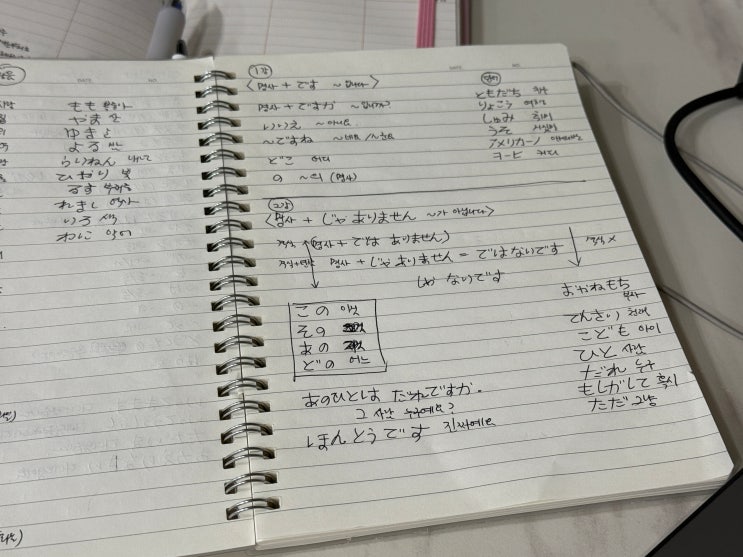 もも 복숭아
やま 산
ゆき 눈
よる 밤
らいねん 내년
ひかり 빛
るす
れきし 역사
いろ 색
わに 악어
1강
<명사 + です ~입니다>
명사 + ですか ~입니까?
いいえ ~아니요.
~ですね ~네요
どこ 어디
の ~의 (명사)
단어
ともだち 친구
りょこう 여행
しゅみ 취미
うそ 거짓말
アメリカーノ 아메리카노
コーヒー 커피
2강
<명사 + じゃありません ~가 아닙니다>
명사 + では ありません)
명사 + じゃ ありません = ではないです
じゃ ないです
この 이
その
あの
どの 어느
あのひとは だれですか.
그 사람 누구예요?
ほんとうです 진짜예요
おかねもち 부자
てんさい 천재
こども 아이
ひと 사람
だれ 누구
もしかして 혹시
ただ 그냥